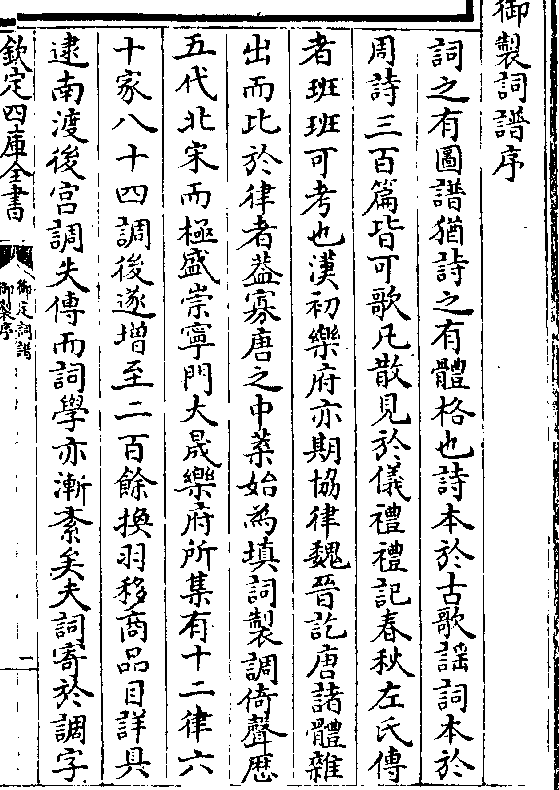 御製詞譜序
詞之有圖譜猶詩之有體格也詩本於古歌謡詞本於
周詩三百篇皆可歌凡散見於儀禮禮記春秋左氏傳
者班班可考也漢初樂府亦期協律魏晉訖唐諸體雜
出而比於律者葢寡唐之中葉始為填詞製調倚聲歴
五代北宋而極盛崇寧間大晟樂府所集有十二律六
十家八十四調後遂增至二百餘換羽移商品目詳具
逮南渡後宫調失傳而詞學亦漸紊矣夫詞寄於調字
欽定四庫全書
御定詞譜
御製序
一